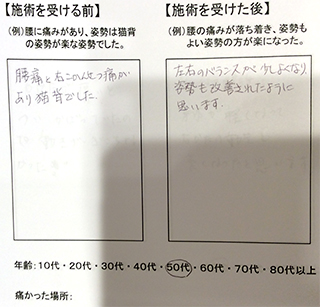 【施術を受ける前】
(例)腰に痛みがあり、姿勢は猫背
の姿勢が楽な姿勢でした。
腰痛と右こかんせつ痛が
あり猫背でした。
【施術を受けた後】
(例)腰の痛みが落ち着き、姿勢も
よい姿勢の方が楽になった。
左右のバランスが少しよくなり
姿勢も改善されたように
思います。
年齢:10代・20代・30代・40代・50代・60代・70代・80代以上
痛かった場所: